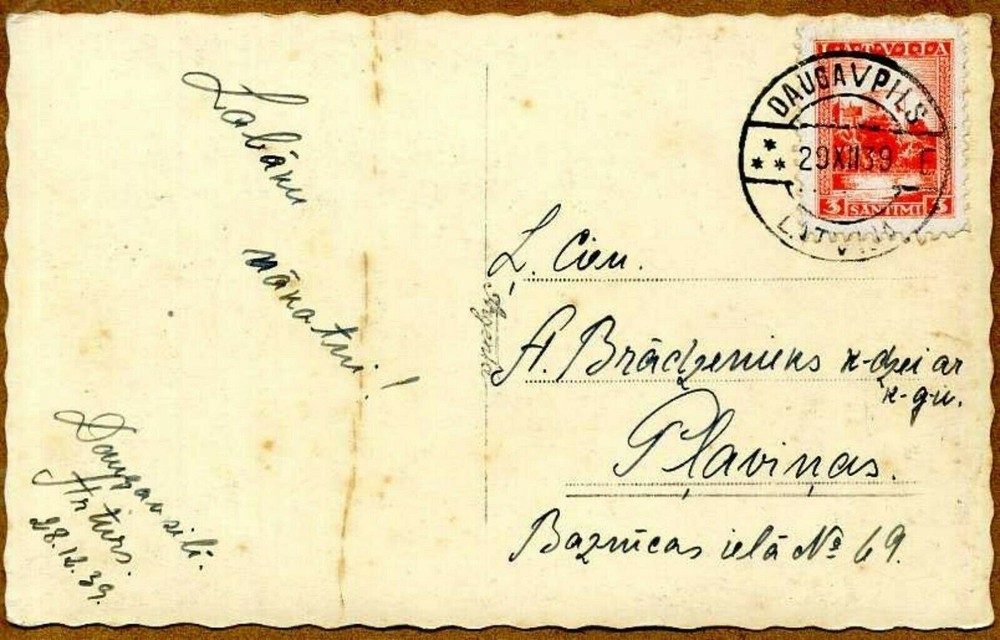 Labāku
nākotni!
Daugavpilī.
Artūrs.
28.12.39.
LATVIJA
DAUGAVPILS
29XII39
3 SANTIMI 3
LATVIJA
Ļ. Cien.
A. Brādzenieks k-dzei ar
k-gu.
Pļaviņas.
Baznīcas ielā № 69.